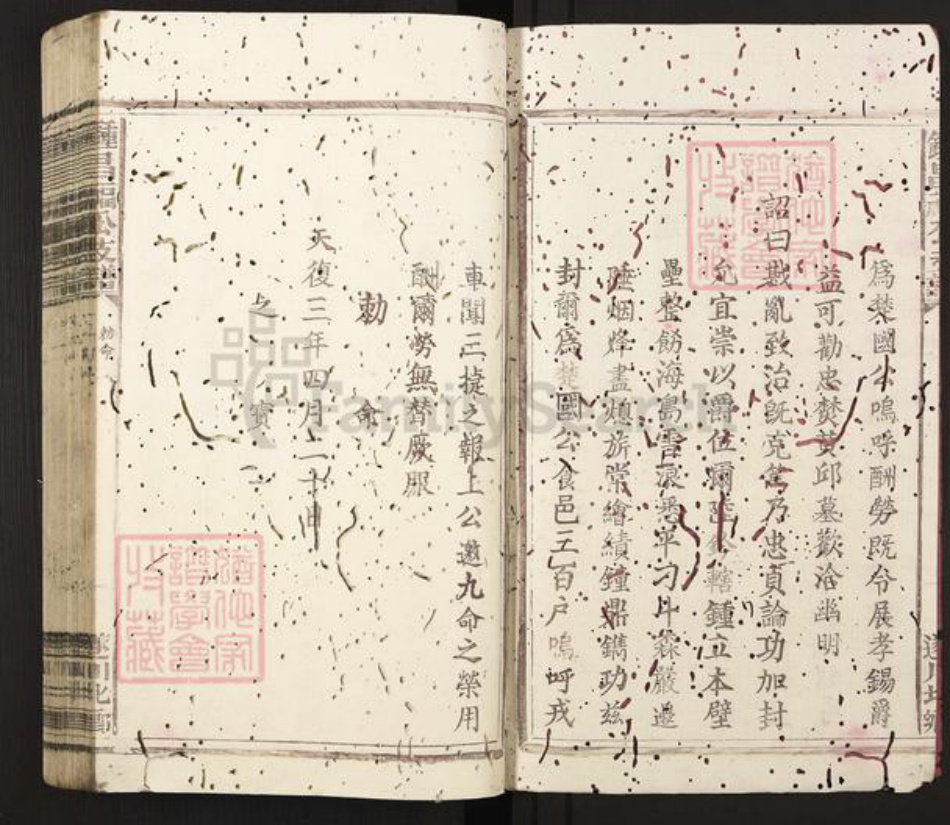 為楚國公嗚呼酬勞既令展孝錫爵
益可勸忠焚黃邱墓歡洽幽明
詔曰戡亂致治既克篤乃忠貞論功加封
允宜崇以爵位爾陸鈐轄鍾立本壁
壘整飭海島雪浪悉平刁斗森嚴邊
陲烟烽盡熄旂常繪績鐘鼎鐫功茲
封爾為楚國公食邑三百戶嗚呼戎
車聞三捷之報上公邀九命之榮用
酬爾勞無替厥服
勅命
天復三年四月二十日
之寶
勅命
遂川北鄉
FamilySearch